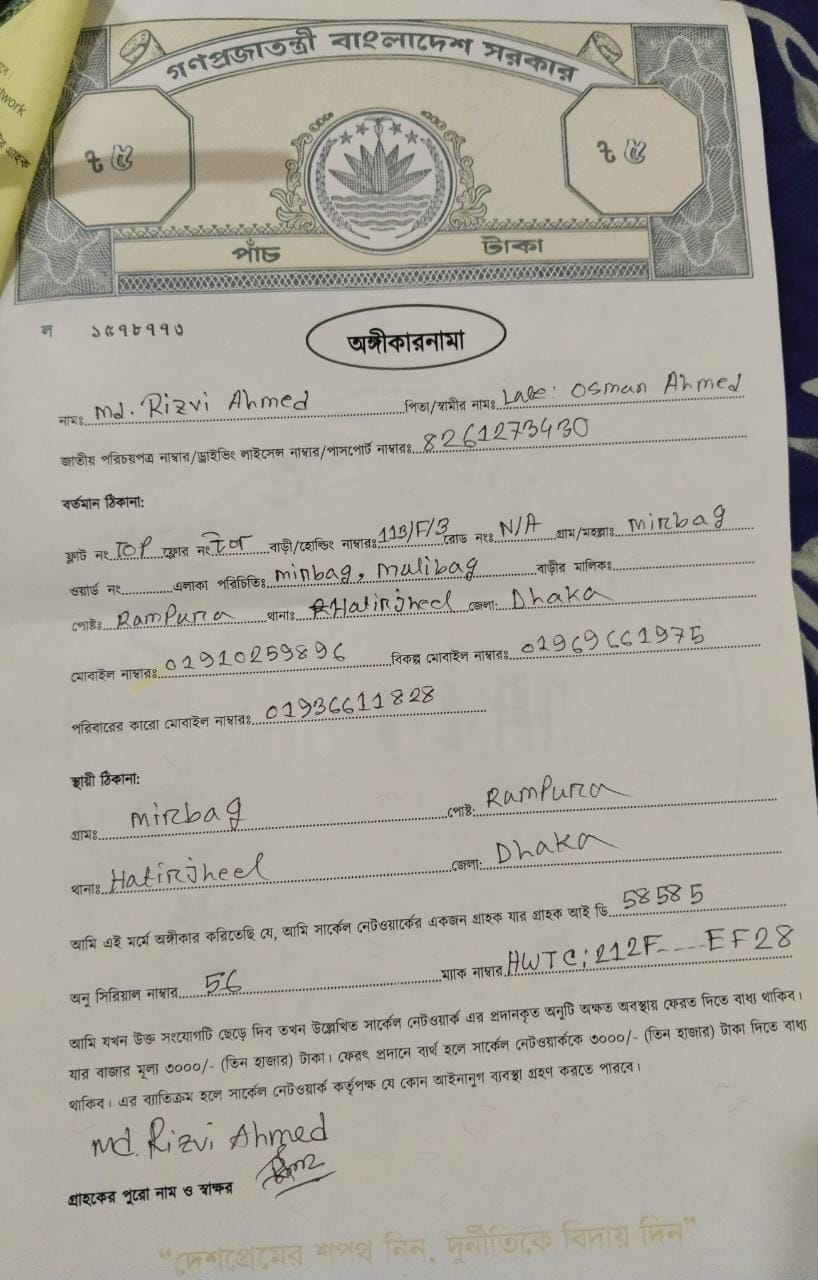 গণপ্রজাতন্ত্রী বাংলাদেশ সরকার
৳ ৫ ৳ ৫
পাঁচ টাকা
ন ১৫৭৮৭৭০
অঙ্গীকারনামা
নামঃ Md. Rizvi Ahmed পিতা/স্বামীর নামঃ Late: Osman Ahmed
জাতীয় পরিচয়পত্র নাম্বার/ড্রাইভিং লাইসেন্স নাম্বার/পাসপোর্ট নাম্বারঃ 8261273430
বর্তমান ঠিকানা:
ফ্লাট নং TOP ফ্লোর নং টপ বাড়ী/হোল্ডিং নাম্বারঃ 113/F/3 রোড নংঃ N/A গ্রাম/মহল্লাঃ Mirbag
ওয়ার্ড নং এলাকা পরিচিতিঃ Mirbag, Malibag বাড়ীর মালিকঃ
পোষ্টঃ Rampura থানাঃ Hatirjheel জেলা: Dhaka
মোবাইল নাম্বারঃ 01910259896 বিকল্প মোবাইল নাম্বারঃ 01969661975
পরিবারের কারো মোবাইল নাম্বারঃ 01936611828
স্থায়ী ঠিকানা:
গ্রামঃ Mirbag পোষ্ট: Rampura
থানাঃ Hatirjheel জেলা: Dhaka
আমি এই মর্মে অঙ্গীকার করিতেছি যে, আমি সার্কেল নেটওয়ার্কের একজন গ্রাহক যার গ্রাহক আই ডি 58585
অনু সিরিয়াল নাম্বার 56 ম্যাক নাম্বার HWTC: 212F----EF28
আমি যখন উক্ত সংযোগটি ছেড়ে দিব তখন উল্লেখিত সার্কেল নেটওয়ার্ক এর প্রদানকৃত অনুটি অক্ষত অবস্থায় ফেরত দিতে বাধ্য থাকিব।
যার বাজার মূল্য ৩০০০/- (তিন হাজার) টাকা। ফেরৎ প্রদানে ব্যর্থ হলে সার্কেল নেটওয়ার্ককে ৩০০০/- (তিন হাজার) টাকা দিতে বাধ্য
থাকিব। এর ব্যতিক্রম হলে সার্কেল নেটওয়ার্ক কর্তৃপক্ষ যে কোন আইনানুগ ব্যবস্থা গ্রহণ করতে পারবে।
Md. Rizvi Ahmed
গ্রাহকের পুরো নাম ও স্বাক্ষর
“দেশপ্রেমের শপথ নিন, দুর্নীতিকে বিদায় দিন”